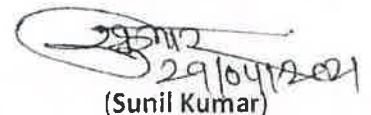 सुकुमार
29/04/2021
(Sunil Kumar)